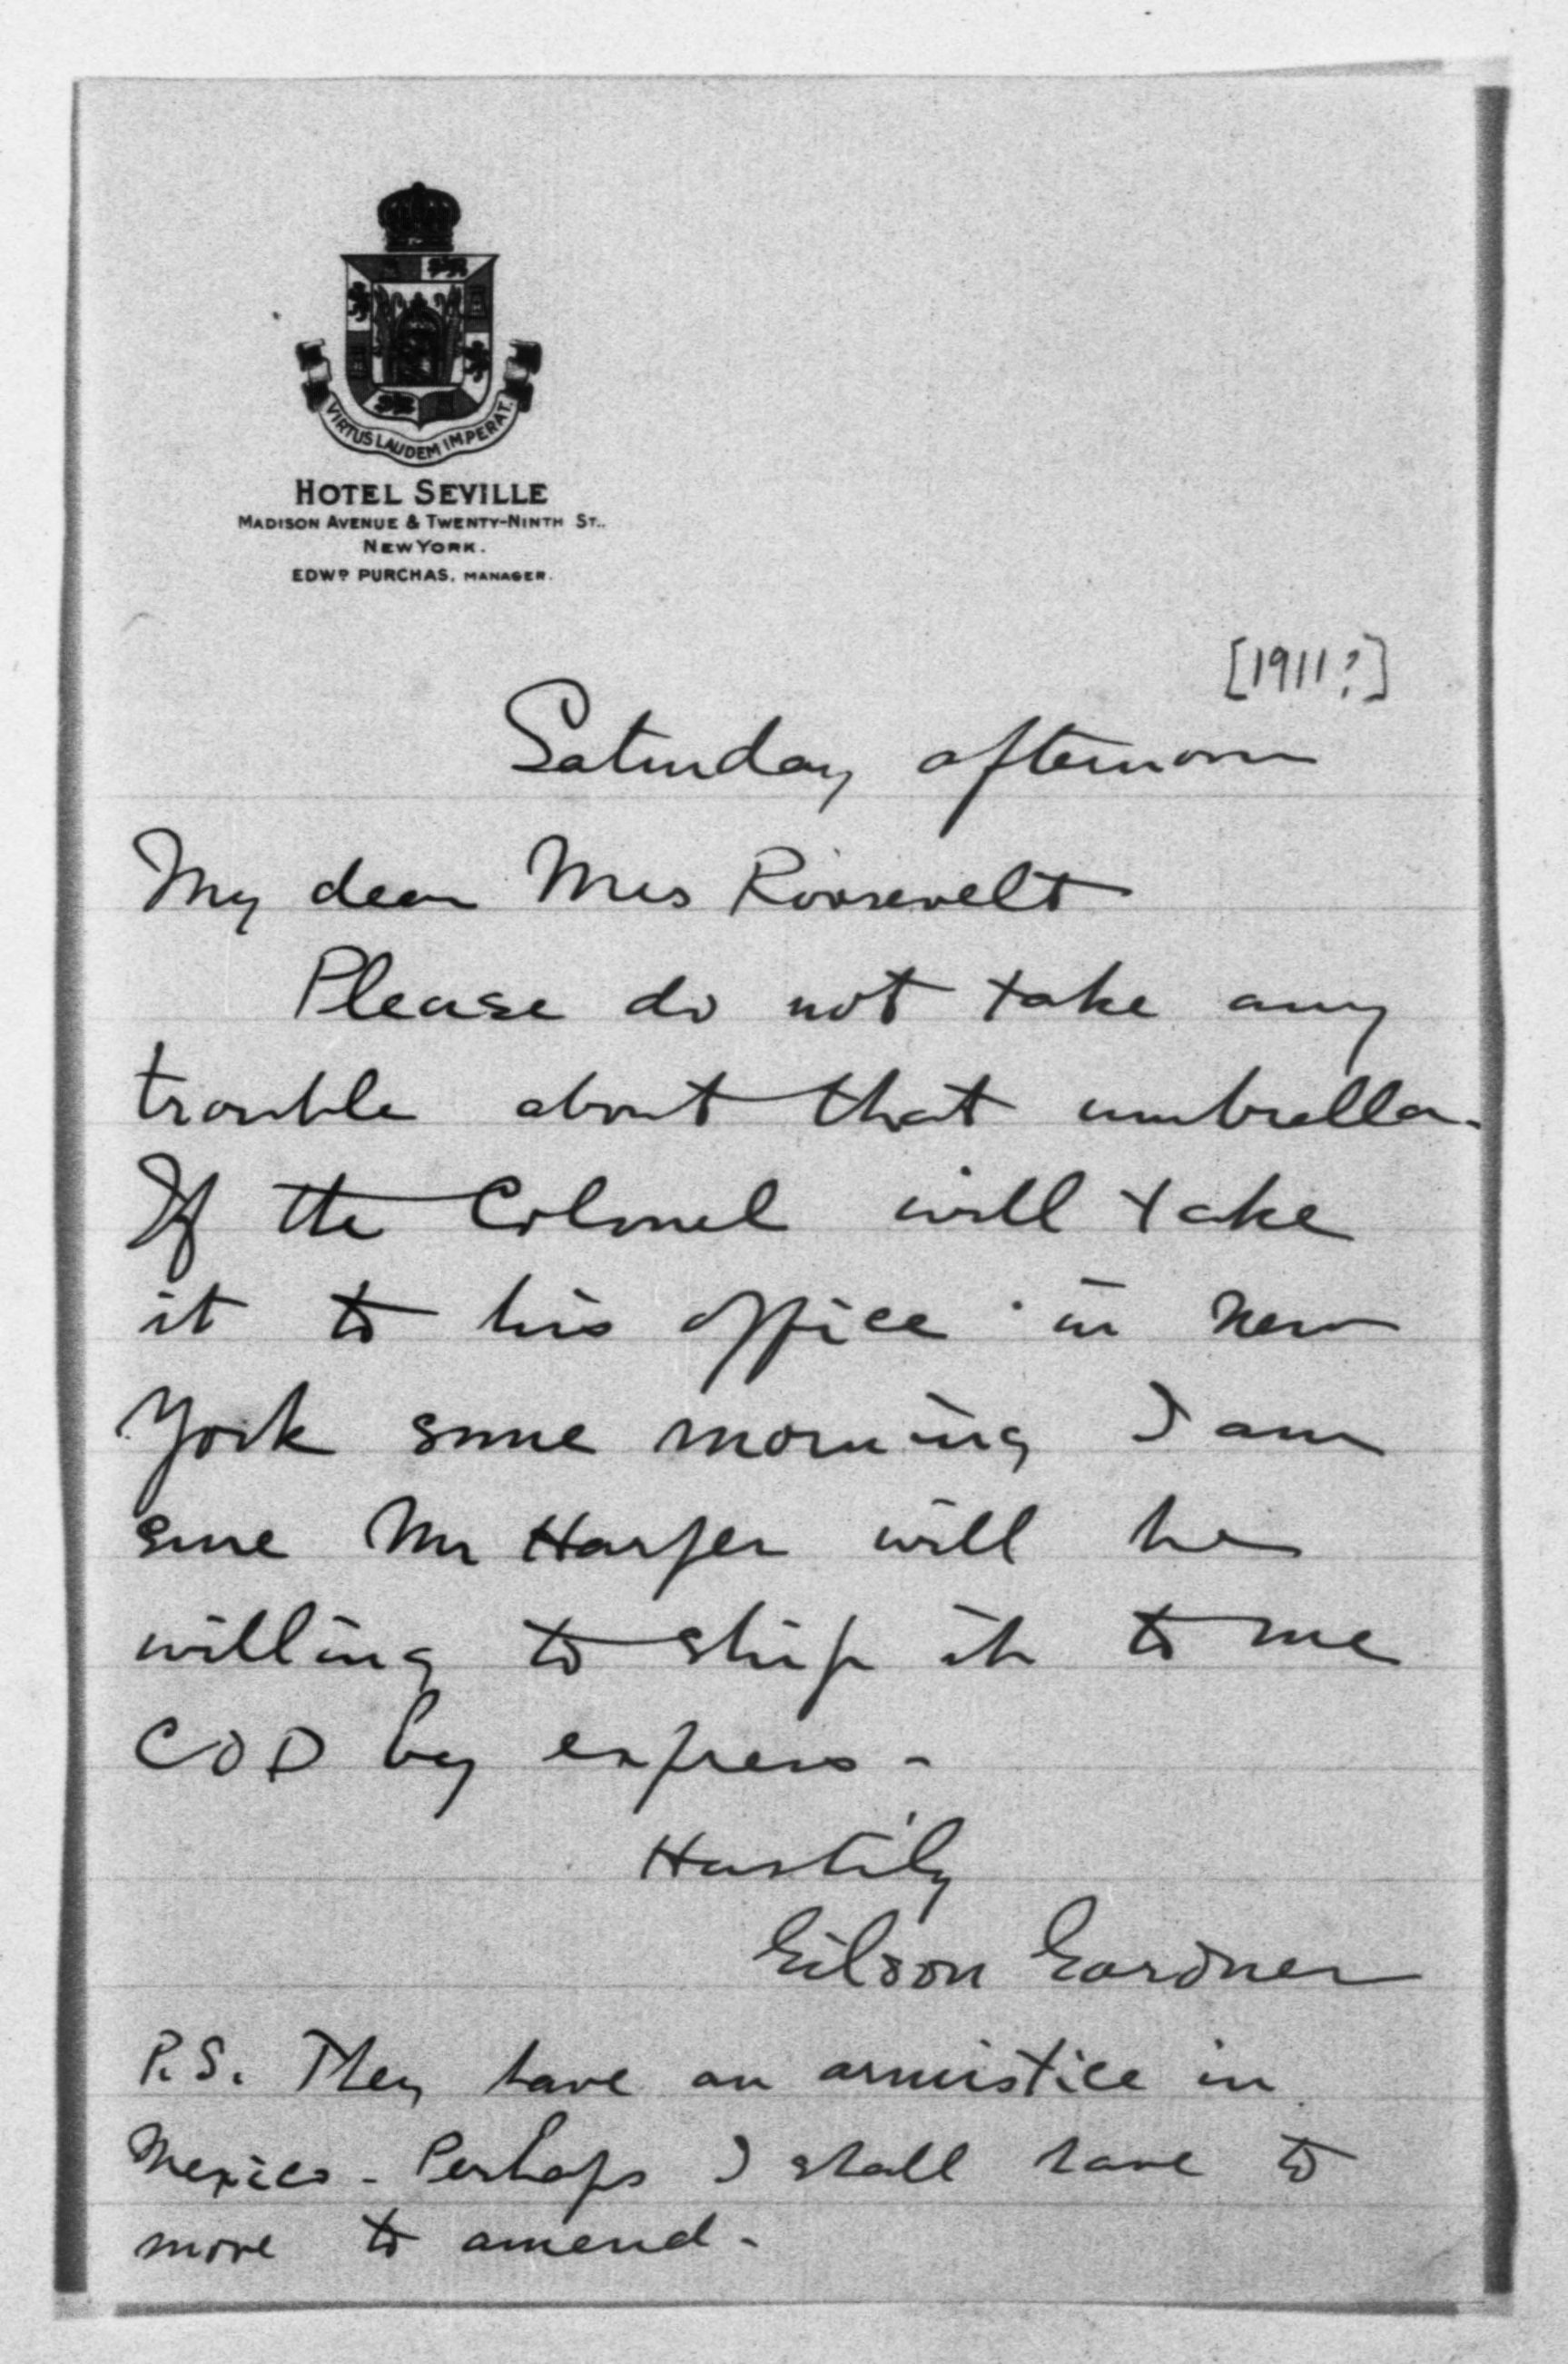 VIRTUS LAUDEM IMPERAT.
HOTEL SEVILLE
MADISON AVENUE & TWENTY-NINTH ST.,
NEW YORK.
EDWD PURCHAS, MANAGER.
[1911?]
Saturday afternoon
My dear Mrs Roosevelt
Please do not take any
trouble about that umbrella.
If the Colonel will take
it to his office in New
York some morning I am
sure Mr Harper will be
willing to ship it to me
COD by express -
Hastily
Gilson Gardner
P.S. They have an armistice in
Mexico - Perhaps I shall have to
move to amend -